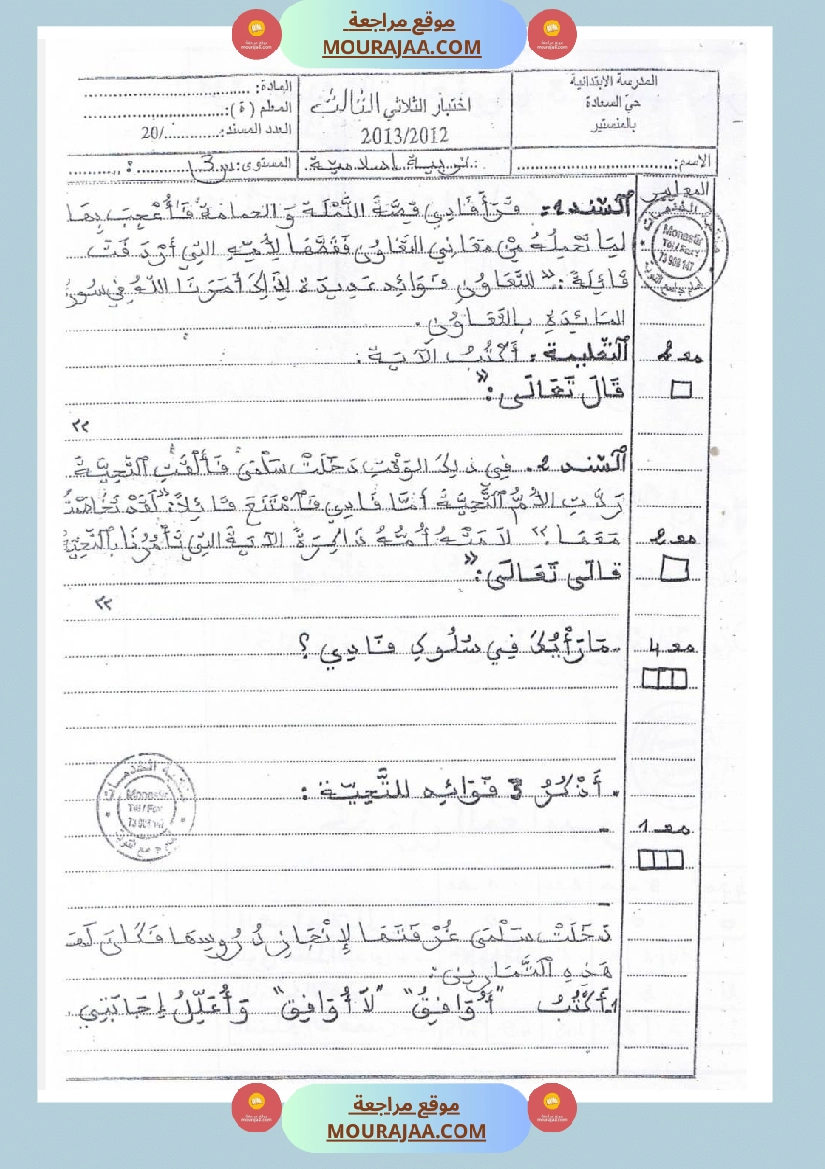 موقع مراجعة
MOURAJAA.COM
المدرسة الابتدائية
حيّ السعادة
بالمنستير
اختبار الثلاثي الثالث
2013/2012
المادة:
المعلم (ة):
العدد المسند: /20
الاسم:
تربية إسلامية
المستوى: س 3
المعايير
السّند 1: قَرَأَ فَادِي قِصَّةَ النَّمْلَةِ وَالحمامةِ فَأُعْجِبَ بِهَا
لِمَا تَحْمِلُهُ مِنْ مَعَانِي التَّعَاوُنِ فَقَصَّهَا لِأُمِّهِ التِي أَرْدَفَتْ
قَائِلَةً: "للتَّعَاوُنِ فَوَائِد عَدِيدَة لِذَلِكَ أَمَرَنَا اللهُ فِي سُورَ
المَائِدَةِ بِالتَّعَاوُنِ.
مع 2
التّعليمة: أَكْتُبُ الآيَةَ:
قَالَ تَعَالَى: "
"
السّند 2: فِي ذلِكَ الوَقْتِ دَخَلَتْ سَلْمَى فَأَلْقَتِ التَّحِيَّةَ
رَدَّتِ الأُمُّ التَّحِيَّةَ أَمَّا فَادِي فَامْتَنَعَ قَائِلاً: "لَقَدْ تَخَاصَمْتُ
مع 2
مَعَهَا." لَامَتْهُ أُمُّهُ ذَاكِرَةً الآيَةَ التِي تَأْمُرُنَا بِالتَّحِيَّةِ
قَالَ تَعَالَى: "
"
مع 4
مَا رَأْيُكَ فِي سُلُوكِ فَادِي؟
. أَذْكُرُ 3 فَوَائِد للتَّحِيَّة:
مع 1
-
-
-
دَخَلَتْ سَلْمَى غُرْفَتَهَا لِإِنْجَازِ دُرُوسِهَا فَكَانَ لَهَا
هَذِهِ التَّمَارِينُ:
1. أَكْتُبُ "أُوَافِقُ" "لاَ أُوَافِق" وَأُعَلِّلُ إِجَابَتِي
Monastir
Monastir
موقع مراجعة
MOURAJAA.COM